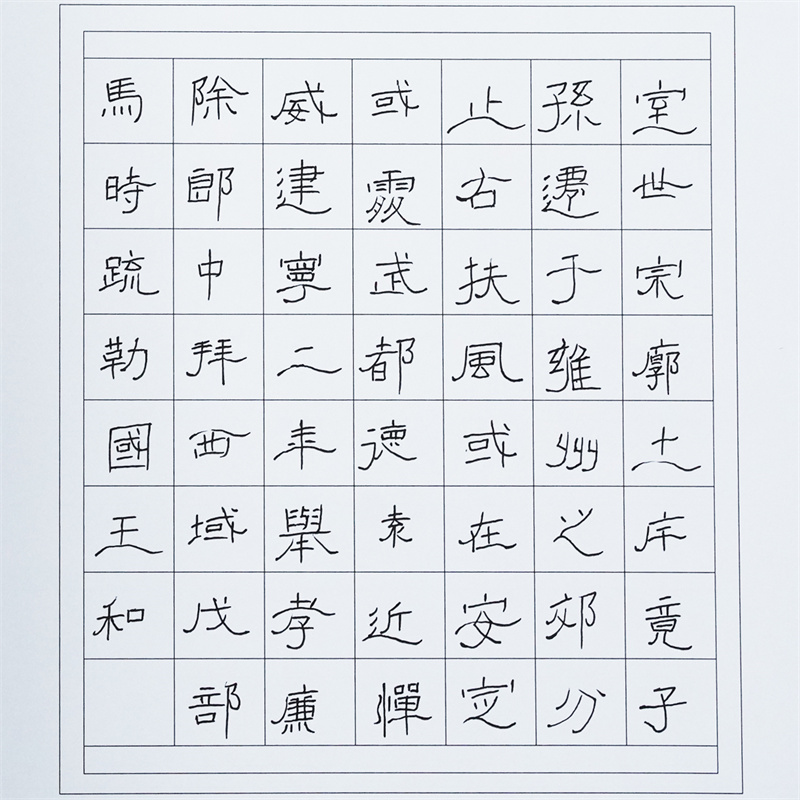 室世宗廓土斥竟子
孫遷于雍州之郊分
止右扶風或在安定
或處武都德素近憚
威建寧二年舉孝廉
除郎中拜西域戊部
馬時疏勒國王和